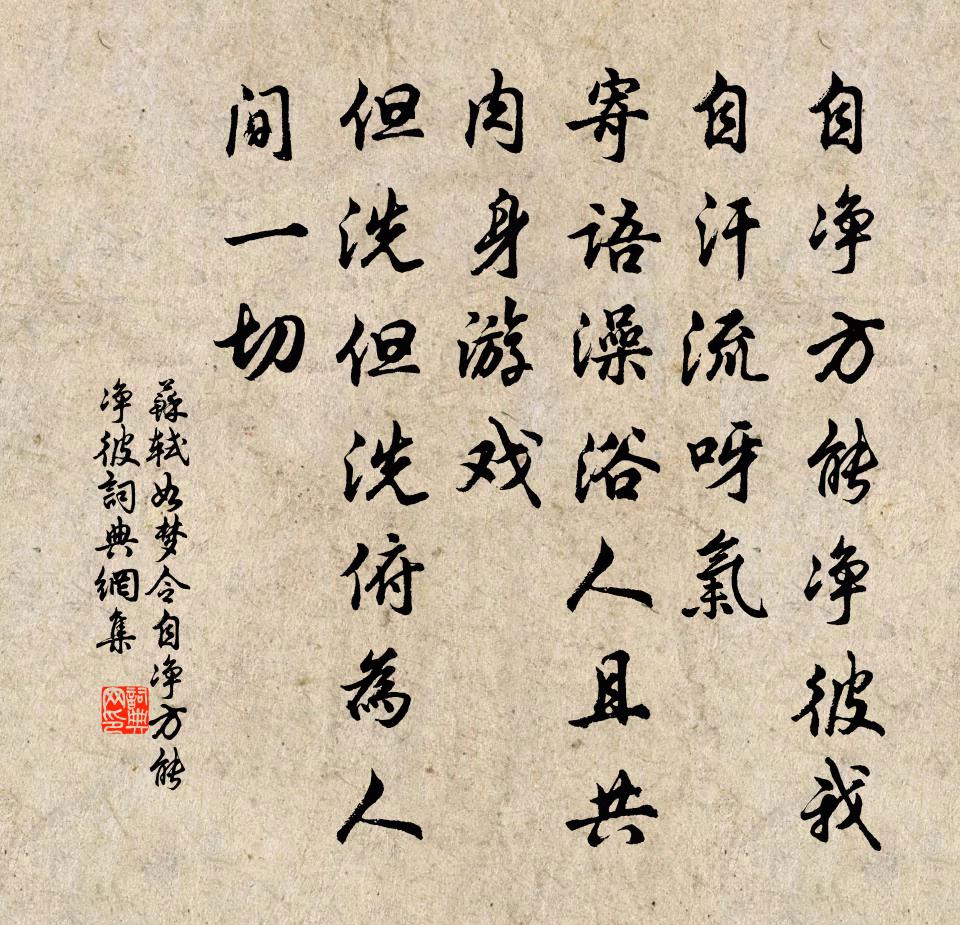 自净方能净彼我
自汗流呀氣
寄语澡浴人且共
肉身游戏
但洗但洗俯為人
间一切
蘇轼如梦令自净方能
净彼詞典網集
詞典网印